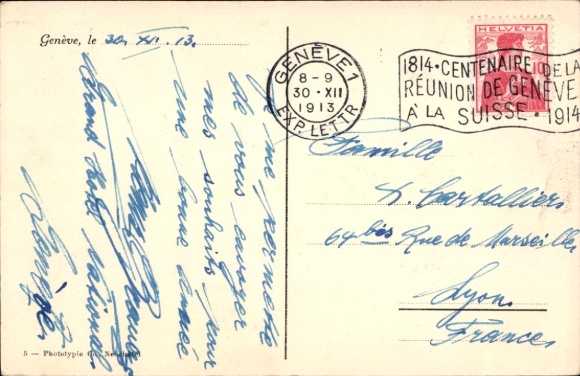 Genève, le 30. XII. 13.
Je me permets
de vous envoyer
mes souhaits pour
une bonne année
Grand Hotel National
Genève
5 — Phototypie Co., Neuchâtel
GENÈVE 1
8-9
30·XII
1913
EXP. LETTR.
HELVETIA
10
1814·CENTENAIRE DE LA
RÉUNION DE GENÈVE
À LA SUISSE · 1914
Famille
D. Cartallier
64 bis Rue de Marseille
Lyon.
France.